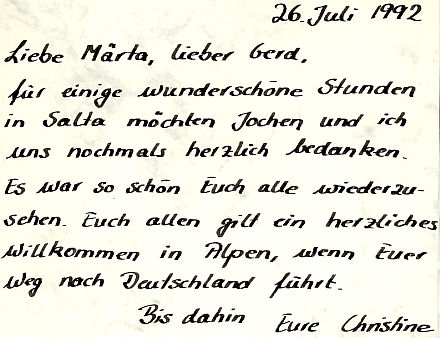 26. Juli 1992
Liebe Märta, lieber Gerd,
für einige wunderschöne Stunden
in Salta möchten Jochen und ich
uns nochmals herzlich bedanken.
Es war so schön Euch alle wiederzu-
sehen. Euch allen gilt ein herzliches
Willkommen in Alpen, wenn Euer
Weg nach Deutschland führt.
Bis dahin Eure Christine